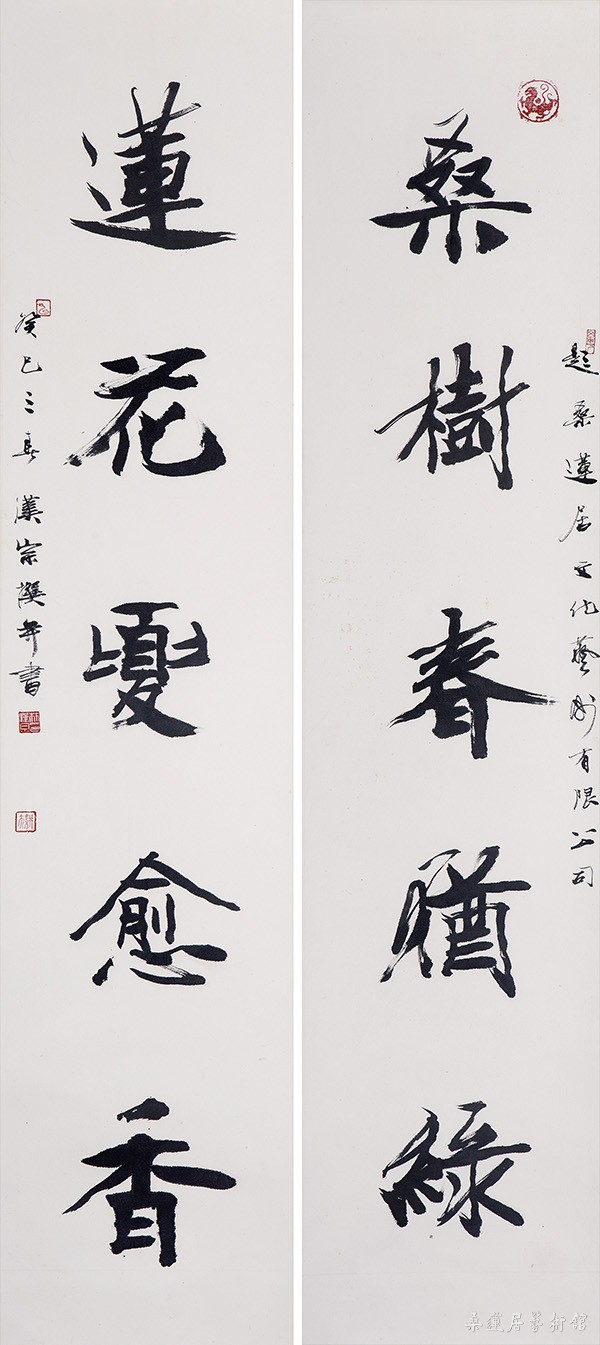 題桑蓮居文化藝術有限公司
桑樹春猶綠
蓮花夏愈香
癸巳三春漢宗撰并書
桑蓮居藝術館